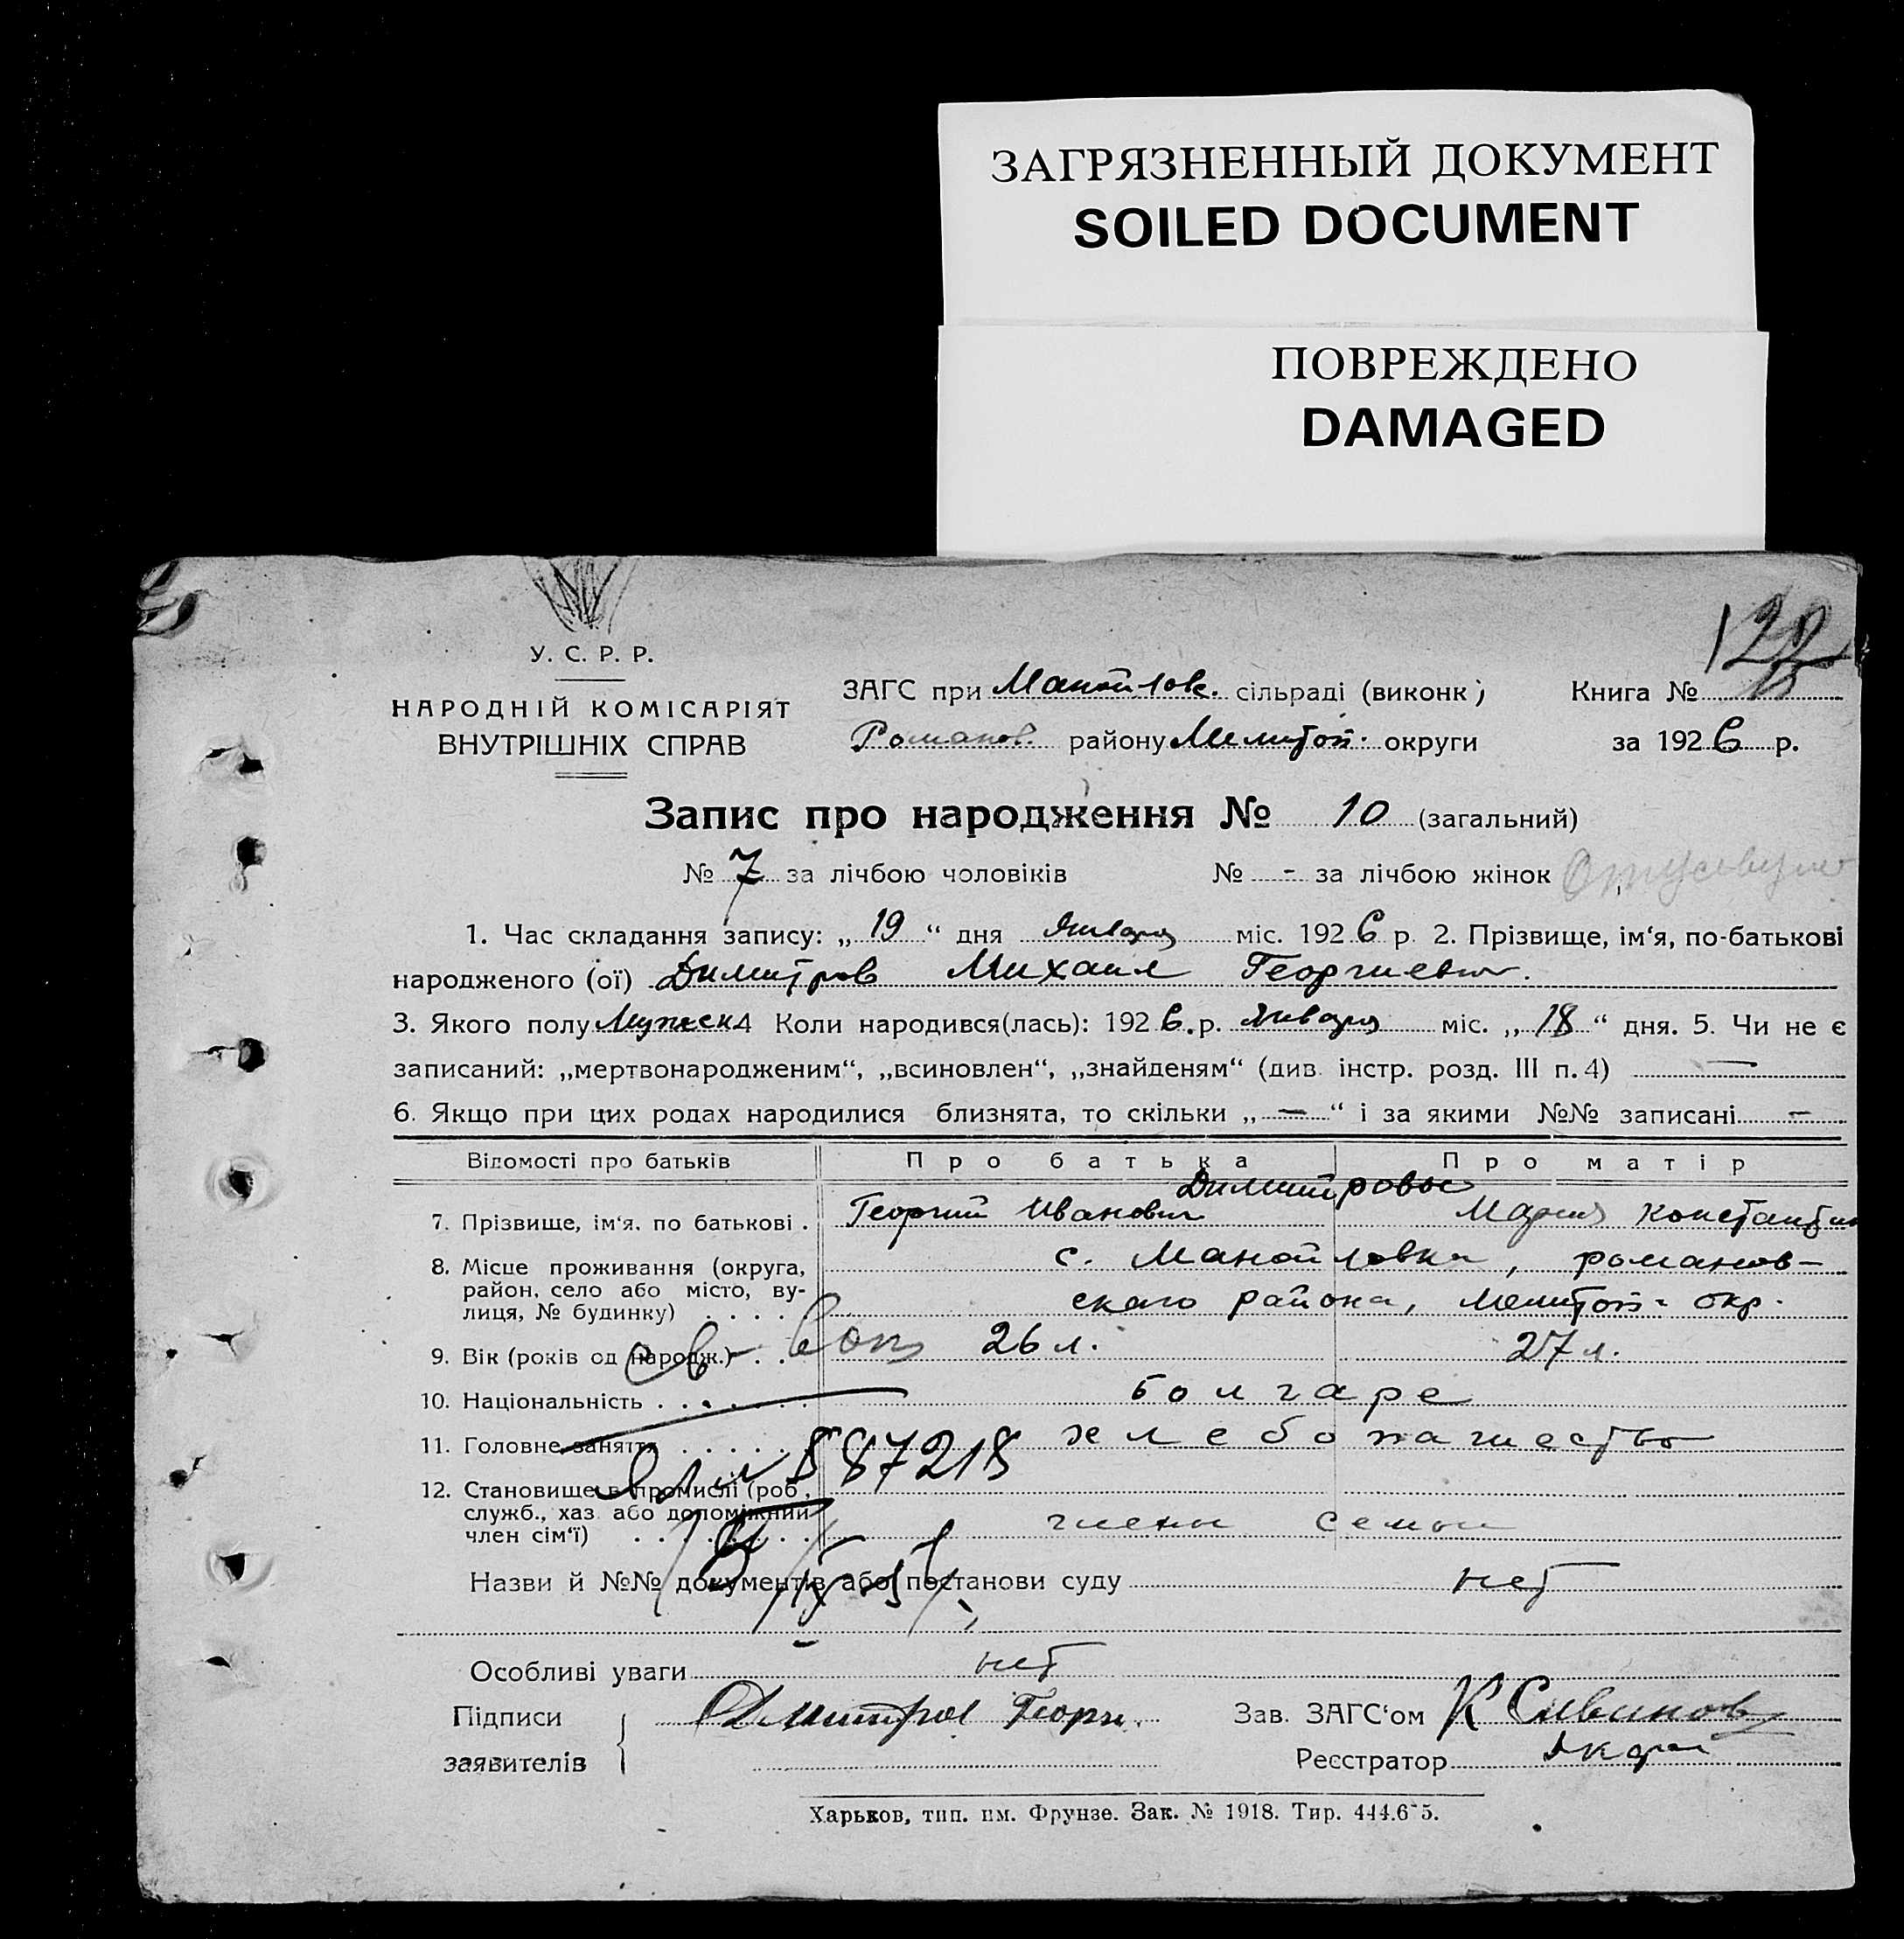 ЗАГРЯЗНЕННЫЙ ДОКУМЕНТ
SOILED DOCUMENT
ПОВРЕЖДЕНО
DAMAGED
122
У. С. Р. Р.
НАРОДНІЙ КОМІСАРІЯТ
ВНУТРІШНІХ СПРАВ
ЗАГС при Манойлов. сільраді (виконк)
Книга №
Романов. району Мелитоп. округи
за 1926 р.
Запис про народження № 10 (загальний)
№ 7 за лічбою чоловіків № - за лічбою жінок
1. Час складання запису: „19“ дня Января міс. 1926 р 2. Прізвище, ім‘я, по-батькові
народженого (ої) Димитров Михаил Георгиевич.
3. Якого полу Мужск 4 Коли народився(лась): 1926.р. Января міс. „18“ дня. 5. Чи не є
записаний: „мертвонародженим“, „всиновлен“, „знайденям“ (див. інстр. розд. III п. 4) —
6. Якщо при цих родах народилися близнята, то скільки „—“ і за якими №№ записані —
Відомості про батьків Про батька Про матір
Димитровы
7. Прізвище, ім‘я, по батькові . Георгий Иванович Мария Константин
8. Місце проживання (округа, с. Манойловка, романов-
район, село або місто, ву-
лиця, № будинку) . . . . скаго района, Мелитоп. окр.
9. Вік (років од народж.) . . . 26 л. 27 л.
10. Національність . . . . . . . болгаре
11. Головне заняття . . . . . . хлебопашество
587218
12. Становище в промислі (роб.,
служб., хаз. або допоміжний
член сім‘ї) . . . . . . . . члены семьи
Назви й №№ документів або постанови суду нет
Особливі уваги нет
Підписи
заявителів
Дмитров Георг.
Зав. ЗАГС‘ом К Сивинов
Реєстратор
Харьков, тип. им. Фрунзе. Зак. № 1918. Тир. 444.675.